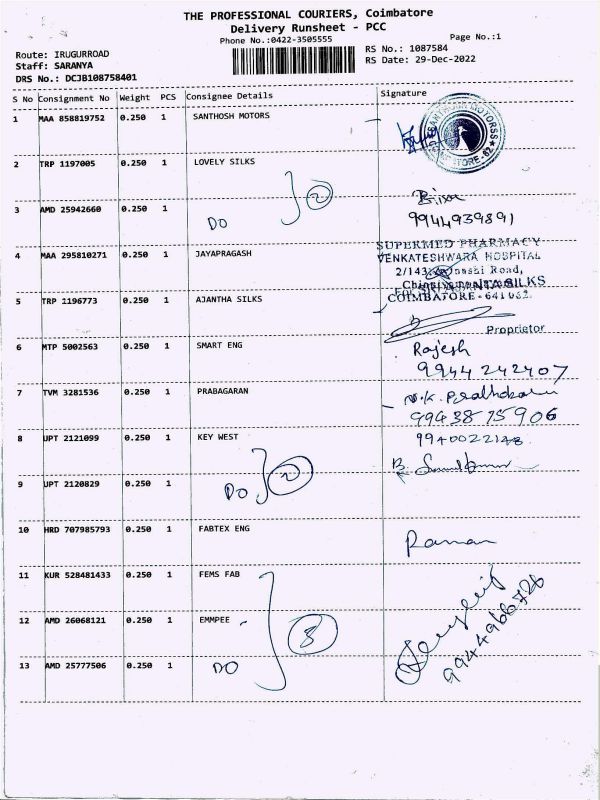 THE PROFESSIONAL COURIERS, Coimbatore
Delivery Runsheet - PCC
Phone No.:0422-3505555
Page No.:1
Route: IRUGURROAD
Staff: SARANYA
DRS No.: DCJB108758401
RS No.: 1087584
RS Date: 29-Dec-2022
S No Consignment No Weight PCS Consignee Details Signature
1 MAA 858819752 0.250 1 SANTHOSH MOTORS
2 TRP 1197005 0.250 1 LOVELY SILKS
2
3 AMD 25942660 0.250 1 DO
9944939891
4 MAA 295810271 0.250 1 JAYAPRAGASH
SUPERMED PHARMACY
VENKATESHWARA HOSPITAL
Road,
5 TRP 1196773 0.250 1 AJANTHA SILKS
COIMBATORE - 641 062.
Proprietor
6 MTP 5002563 0.250 1 SMART ENG
Rajesh
9944242407
7 TVM 3281536 0.250 1 PRABAGARAN
9943875906
8 UPT 2121099 0.250 1 KEY WEST
2
9 UPT 2120829 0.250 1 DO
10 HRD 707985793 0.250 1 FABTEX ENG
Raman
11 KUR 528481433 0.250 1 FEMS FAB
12 AMD 26068121 0.250 1 EMMPEE
3
13 AMD 25777506 0.250 1 DO